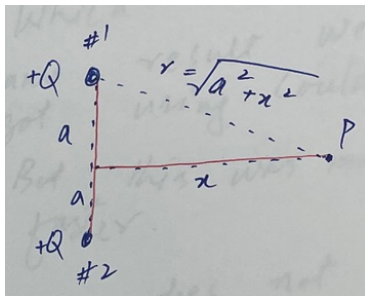 #1
+Q
r = √a² + x²
a
P
x
a
+Q
#2